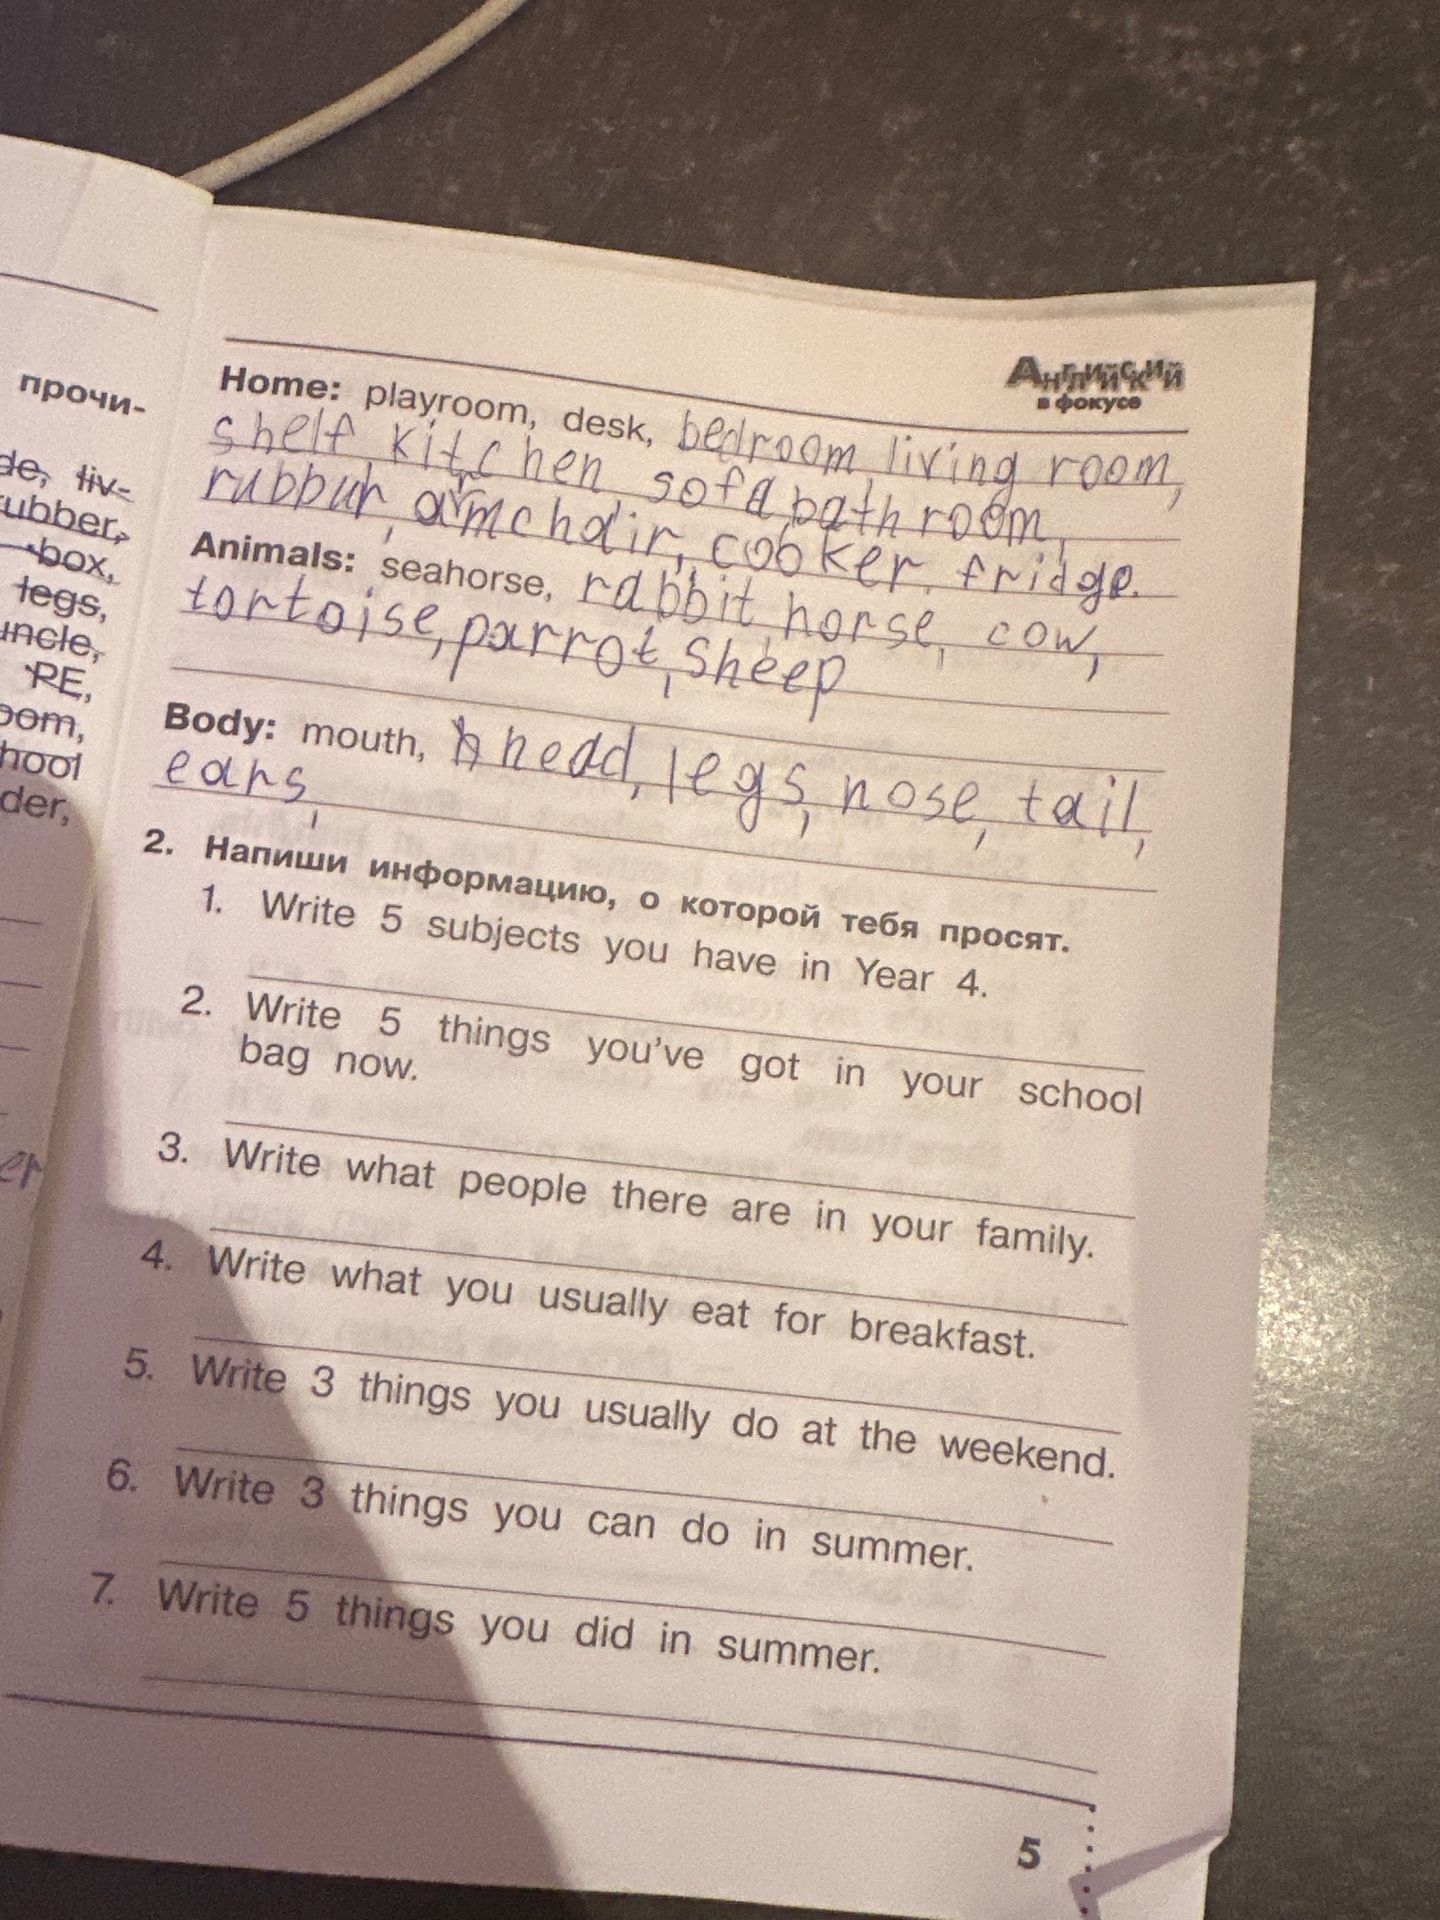 прочи-
de, liv-
ubber,
box,
legs,
uncle,
PE,
oom,
hool
der,
er
Английский
в фокусе
Home: playroom, desk, bedroom, living room,
shelf kitchen sofa, bathroom,
rubbur, armchair, cooker, fridge.
Animals: seahorse, rabbit, horse, cow,
tortoise, parrot, sheep
Body: mouth, head, legs, nose, tail,
ears,
2. Напиши информацию, о которой тебя просят.
1. Write 5 subjects you have in Year 4.
2. Write 5 things you've got in your school
bag now.
3. Write what people there are in your family.
4. Write what you usually eat for breakfast.
5. Write 3 things you usually do at the weekend.
6. Write 3 things you can do in summer.
7. Write 5 things you did in summer.
5